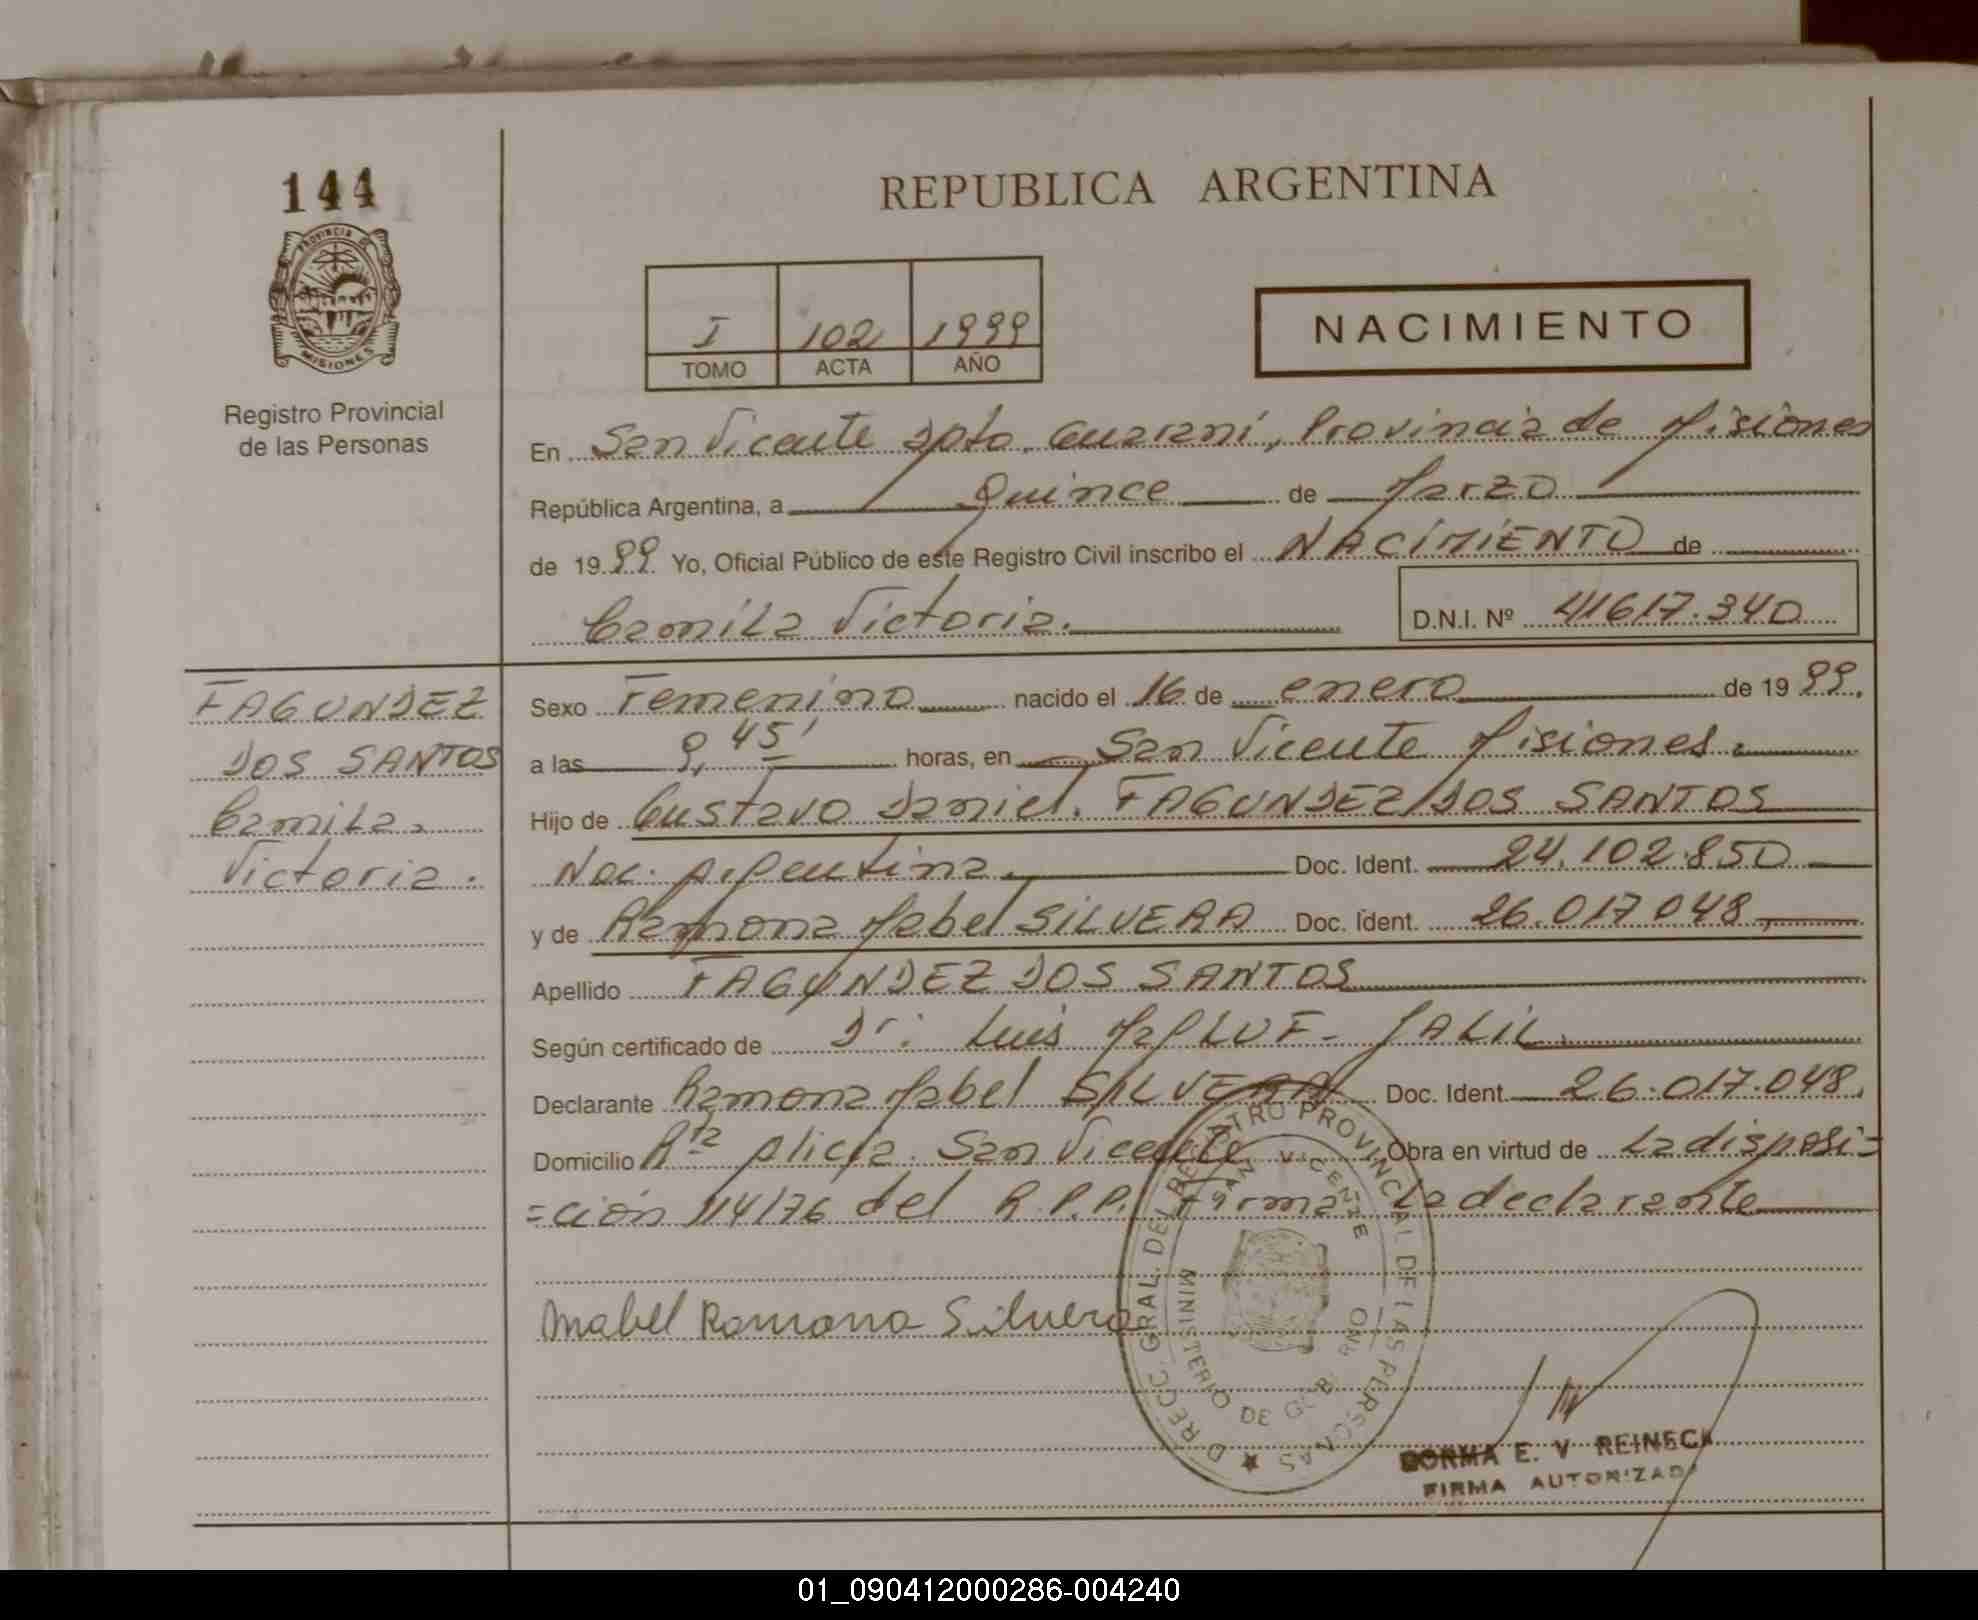 144
PROVINCIA DE
MISIONES
Registro Provincial
de las Personas
REPUBLICA ARGENTINA
I 102 1999
TOMO ACTA AÑO
NACIMIENTO
En San Vicente Dpto. Guaraní, Provincia de Misiones
República Argentina, a Quince de Marzo
de 1999 Yo, Oficial Público de este Registro Civil inscribo el NACIMIENTO de
Camila Victoria. D.N.I. Nº 41617.340
FAGUNDEZ
DOS SANTOS
Camila.
Victoria.
Sexo Femenino nacido el 16 de enero de 1999.
a las 9,45' horas, en San Vicente Misiones.
Hijo de Gustavo Daniel. FAGUNDEZ DOS SANTOS
Nac. Argentina. Doc. Ident. 24.102.850
y de Ramona Mabel SILVERA Doc. Ident. 26.017.048,
Apellido FAGUNDEZ DOS SANTOS
Según certificado de Dr. Luis JALIL.
Declarante Ramona Mabel SILVERA Doc. Ident. 26.017.048.
Domicilio Alicia. San Vicente Obra en virtud de La disposi=
=ción 114/76 del R.P.P. Firma La declarante
Mabel Ramona Silvera
DIRECC. GRAL. DEL REGISTRO PROVINCIAL DE LAS PERSONAS
SAN VICENTE
MINISTERIO DE GOBIERNO
E. V. REINECK
FIRMA AUTORIZADA
01_090412000286-004240